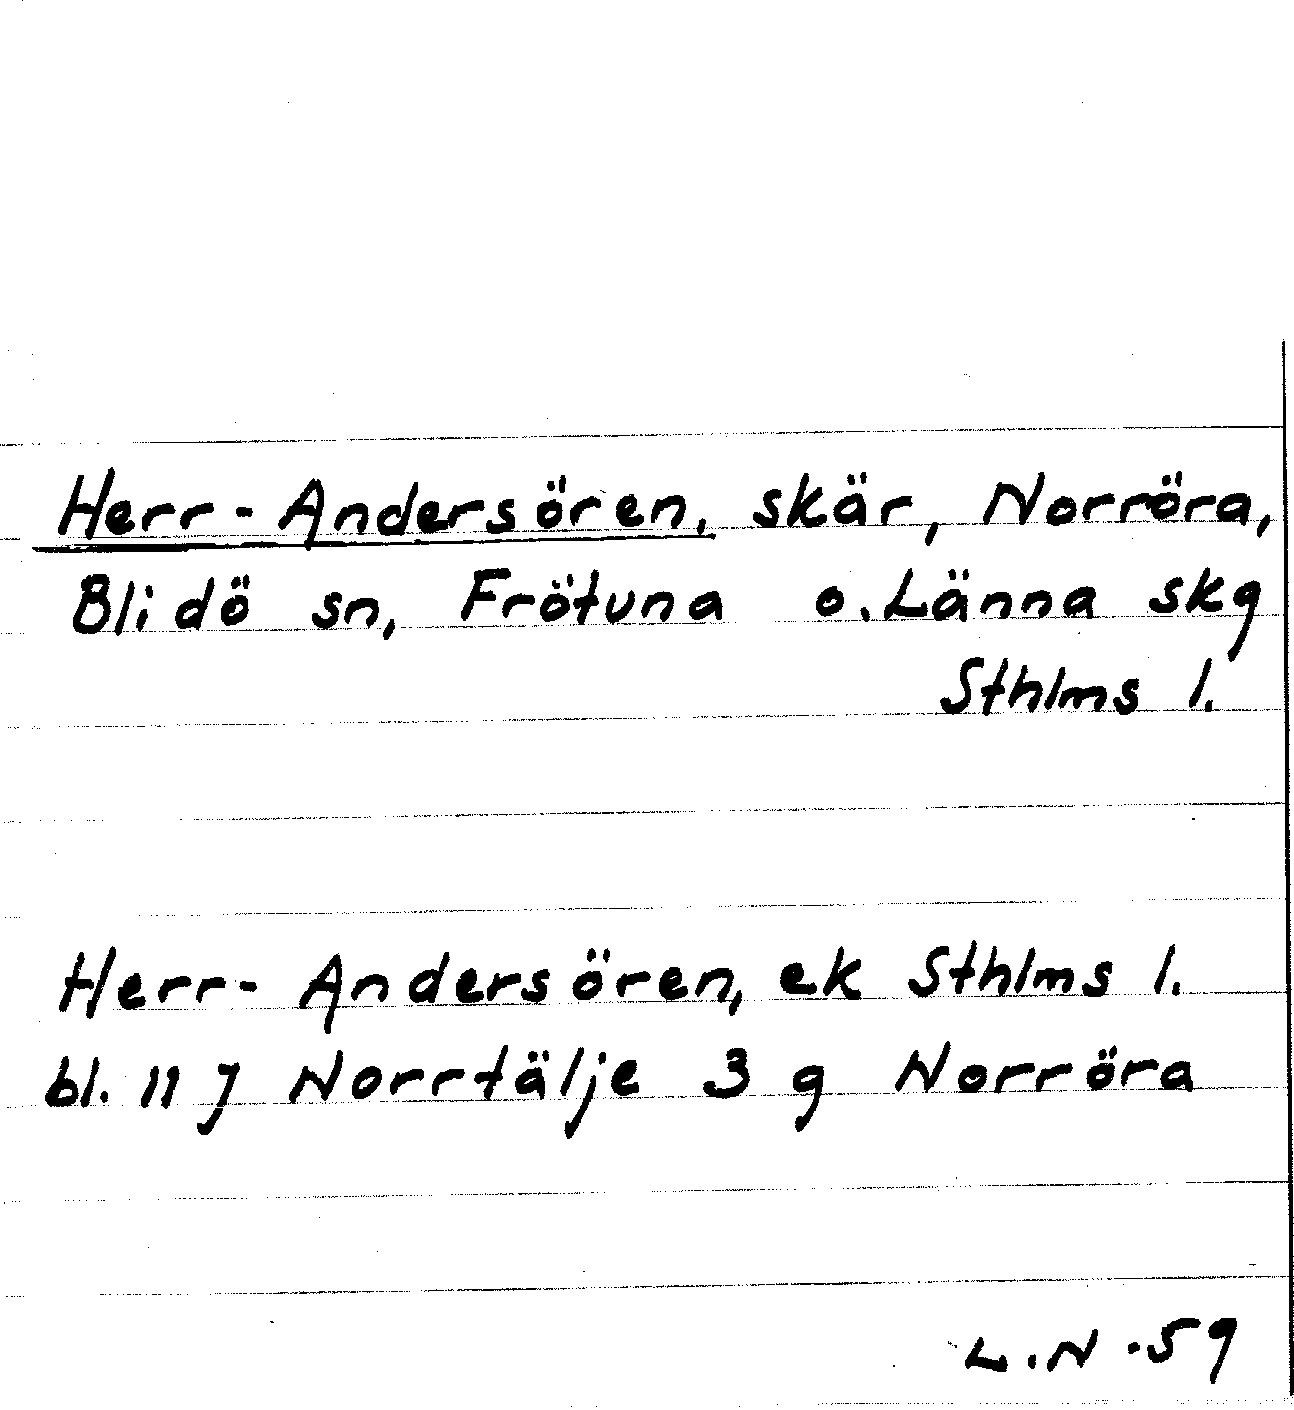 Herr-Andersören, skär, Norröra,
Blidö sn, Frötuna o. Länna skg
Sthlms l.
Herr-Andersören, ek Sthlms l.
bl. 11 J Norrtälje 3 g Norröra
L.N -59